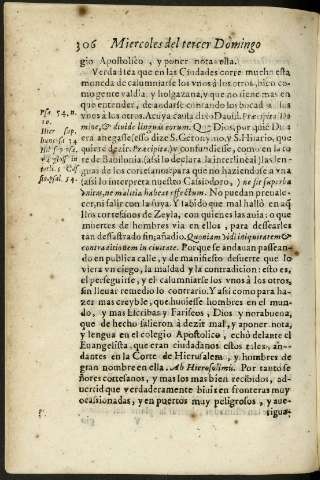 306 Miercoles del tercer Domingo
gio Apostolico, y poner nota ella.
Verdad ea que en las Ciudades corre mucho esta
moneda de calumniarse los vnos à los otros, bien co-
mo gente valdia, y holgazana, y que no tiene mas en
que entender, de andarse contando los bocados los
vnos à los otros. A cuya causa dixo Dauid. Precipita Do
mine, & diuide linguas eorum. Que Dios, por quié Dù
era anegasse (esso dize S. Geronymo, y S. Hilario, que
quiere dezir Precipita) y confundiesse, como en la to
re de Babilonia (assi lo declara la interlineal) las len-
guas de los cortesanos, para que no haziendose a vna
(assi lo interpreta nuestro Cassiodoro,) ne se superba
vnitate, ne malitia haberet effectum. No puedan preuale-
cer, ni salir con la suya. Y sabido que mal halló en aq
llos cortesanos de Zeyla, con quienes las auia: o que
muertes de hombres via en ellos, para dessearles
tan desastrado fin; añadio. Quoniam vidi iniquitatem &
contradictionem in ciuitate. Porque se andauan passean-
do en publica calle, y de manifiesto desuerte que lo
viera vn ciego, la maldad y la contradicion: esto es,
el perseguirse, y el calumniarse los vnos à los otros,
sin lleuar remedio lo contrario. Y assi como para ha-
zer mas creyble, que huuiesse hombres en el mun-
do, y mas Escribas y Fariseos, Dios y norabuena,
que de hecho salieron à dezir mal, y aponer nota,
y lengua en el colegio Apostolico, echò delante el
Euangelista que eran ciudadanos estos tales, an-
dantes en la Corte de Hierusalem, y hombres de
gran nombre en ella. Ab Hierosolimis. Por tanto se
ñores cortesanos, y mas los mas bien recibidos, ad-
uertid que verdaderamente biuis en fronteras muy
ocassionadas, y en puertos muy peligrosos, y aue-
rigua-
Psa. 54. n.
10.
Hier. sup.